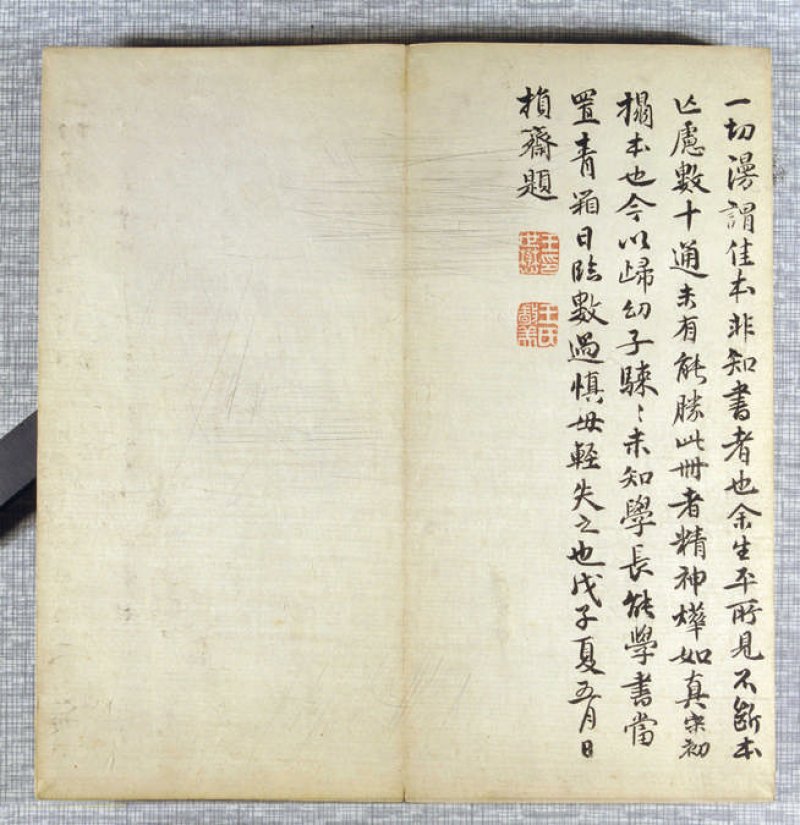 一切漫謂佳本非知書者也余生平所見不斷本
亡慮數十通未有能勝此冊者精神燁如真宋初
搨本也今以歸幼子騋〻未知學長能學書當
置青箱日臨數過慎毋輕失之也戊子夏五月日
損齋題
王印
世懋
王氏
敬美